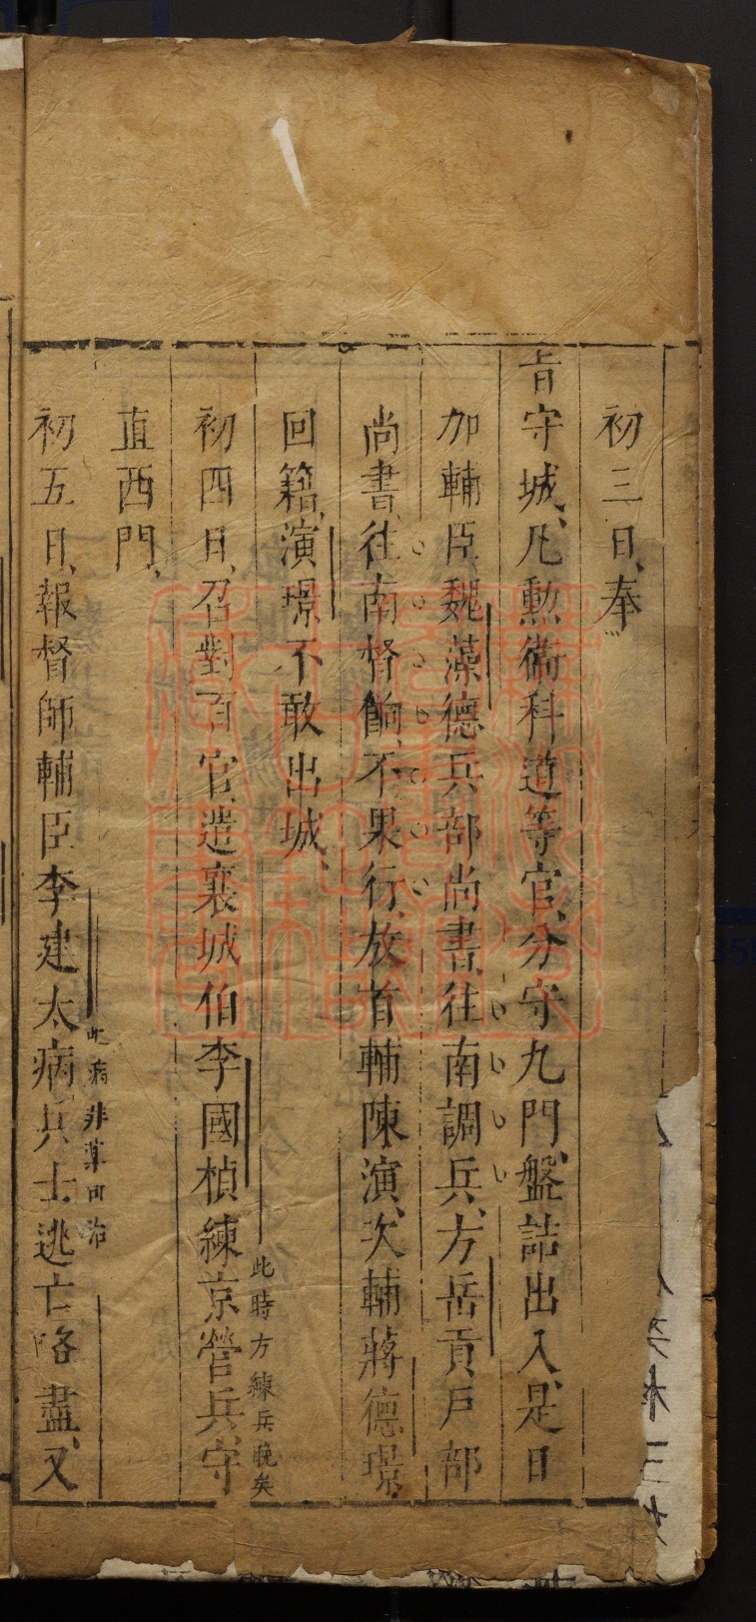 初三日、奉
旨守城、凡勲衞科道等官、分守九門、盤詰出入、是日
加輔臣魏藻德兵部尚書、往南調兵、方岳貢戸部
尚書、往南督餉、不果行、放首輔陳演、次輔蔣德璟
回籍、演璟不敢出城、
初四日、召對百官、遣襄城伯李國楨練京營兵、守
此時方練兵晩矣
直西門、
初五日、報督師輔臣李建太病、兵士逃亡略盡、又
此病非草可治